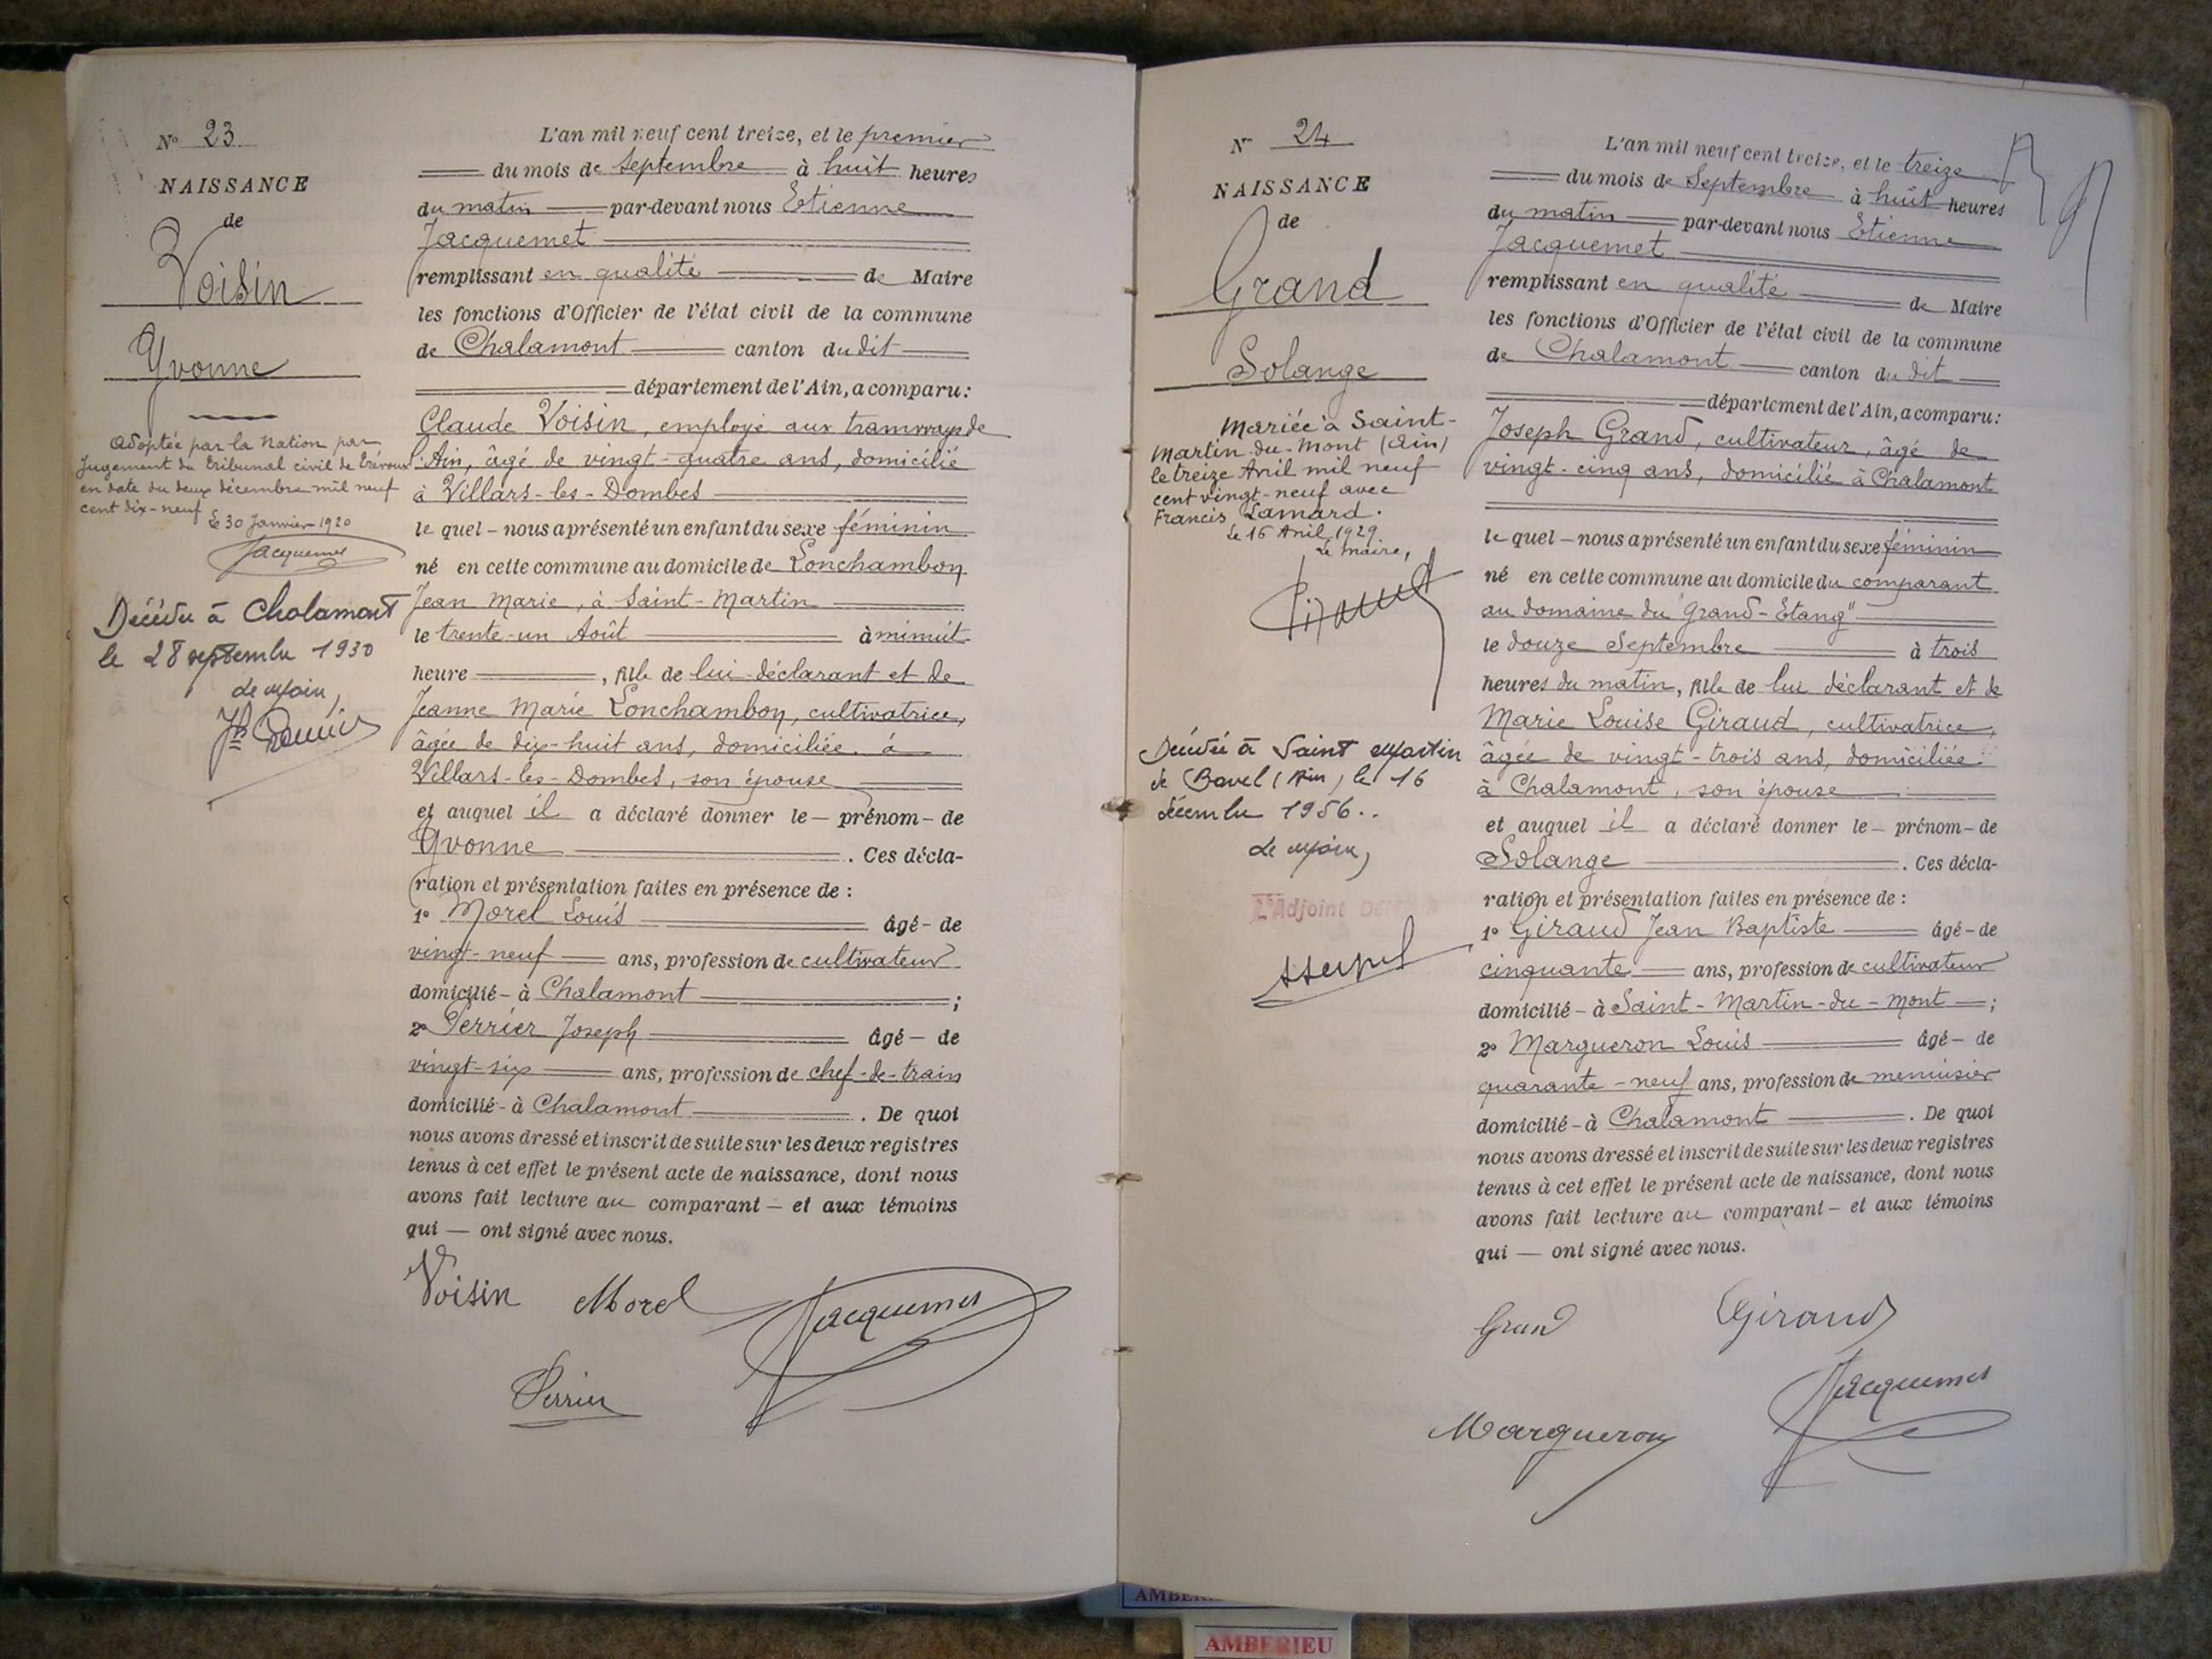 N° 23
NAISSANCE
de
Voisin
Yvonne
Adoptée par la Nation par
Jugement du Tribunal civil de Trévoux
en date du deux décembre mil neuf
cent dix-neuf
Le 30 Janvier 1920
Jacquemet
Décédée à Chalamont
le 28 septembre 1930
Le Maire,
L'an mil neuf cent treize, et le premier
du mois de Septembre à huit heures
du matin par-devant nous Etienne
Jacquemet
remplissant en qualité de Maire
les fonctions d'Officier de l'état civil de la commune
de Chalamont canton du dit
département de l'Ain, a comparu :
Claude Voisin, employé aux tramways de
l'Ain, âgé de vingt-quatre ans, domicilié
à Villars-les-Dombes
le quel – nous a présenté un enfant du sexe féminin
né en cette commune au domicile de Lonchambon
Jean Marie, à Saint-Martin
le trente-un Août à minuit
heure , fille de lui déclarant et de
Jeanne Marie Lonchambon, cultivatrice,
âgée de dix-huit ans, domiciliée à
Villars-les-Dombes, son épouse
et auquel il a déclaré donner le – prénom – de
Yvonne . Ces décla-
ration et présentation faites en présence de :
1° Morel Louis âgé – de
vingt-neuf ans, profession de cultivateur
domicilié – à Chalamont ;
2° Perrier Joseph âgé – de
vingt-six ans, profession de chef-de-train
domicilié – à Chalamont . De quoi
nous avons dressé et inscrit de suite sur les deux registres
tenus à cet effet le présent acte de naissance, dont nous
avons fait lecture au comparant – et aux témoins
qui — ont signé avec nous.
Voisin Morel Jacquemet
Perrier
N° 24
NAISSANCE
de
Grand
Solange
Mariée à Saint-
Martin-du-Mont (Ain)
le treize Avril mil neuf
cent vingt-neuf avec
Francis Lamard.
Le 16 Avril 1929
Le Maire,
Décédée à Saint Martin
de Bavel (Ain) le 16
décembre 1956..
Le Maire,
L'Adjoint
L'an mil neuf cent treize, et le treize
du mois de Septembre à huit heures
du matin par-devant nous Etienne
Jacquemet
remplissant en qualité de Maire
les fonctions d'Officier de l'état civil de la commune
de Chalamont canton du dit
département de l'Ain, a comparu :
Joseph Grand, cultivateur, âgé de
vingt-cinq ans, domicilié à Chalamont
le quel – nous a présenté un enfant du sexe féminin
né en cette commune au domicile du comparant
au domaine du "Grand-Etang"
le douze Septembre à trois
heures du matin, fille de lui déclarant et de
Marie Louise Giraud, cultivatrice,
âgée de vingt-trois ans, domiciliée
à Chalamont, son épouse
et auquel il a déclaré donner le – prénom – de
Solange . Ces décla-
ration et présentation faites en présence de :
1° Giraud Jean Baptiste âgé – de
cinquante ans, profession de cultivateur
domicilié – à Saint-Martin-du-Mont ;
2° Margueron Louis âgé – de
quarante-neuf ans, profession de menuisier
domicilié – à Chalamont . De quoi
nous avons dressé et inscrit de suite sur les deux registres
tenus à cet effet le présent acte de naissance, dont nous
avons fait lecture au comparant – et aux témoins
qui — ont signé avec nous.
Grand Giraud
Jacquemet
Margueron
AMBERIEU